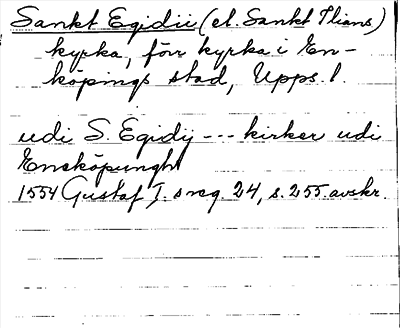 Sankt Egidii (el. Sankt Ilians)
kyrka, förr kyrka i En-
köpings stad, Upps. l.
udi S. Egidij --- kirker udi
Eneköpungh
1554 Gustaf I. s reg. 24, s. 255. avskr.